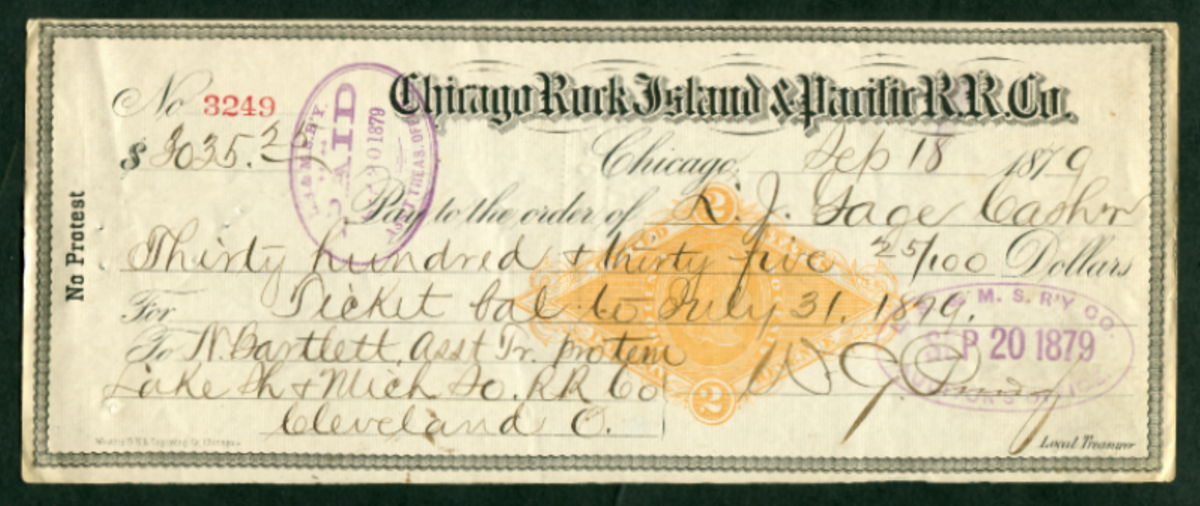 Chicago Rock Island & Pacific R.R. Co.
No 3249
$3035.25
Chicago, Sep 18 1879
Pay to the order of L. J. Gage Cash'r
Thirty hundred & thirty five 25/100 Dollars
For Ticket bal to July 31. 1879.
To N. Bartlett, Asst Tr. protem
Lake Sh & Mich So. R R Co
Cleveland O.
W. G.
Local Treasurer
No Protest
L. S. & M. S. R'Y.
PAID
1879
ASS'T TREAS. OFF
& M. S. R'Y CO.
SEP 20 1879
2
2